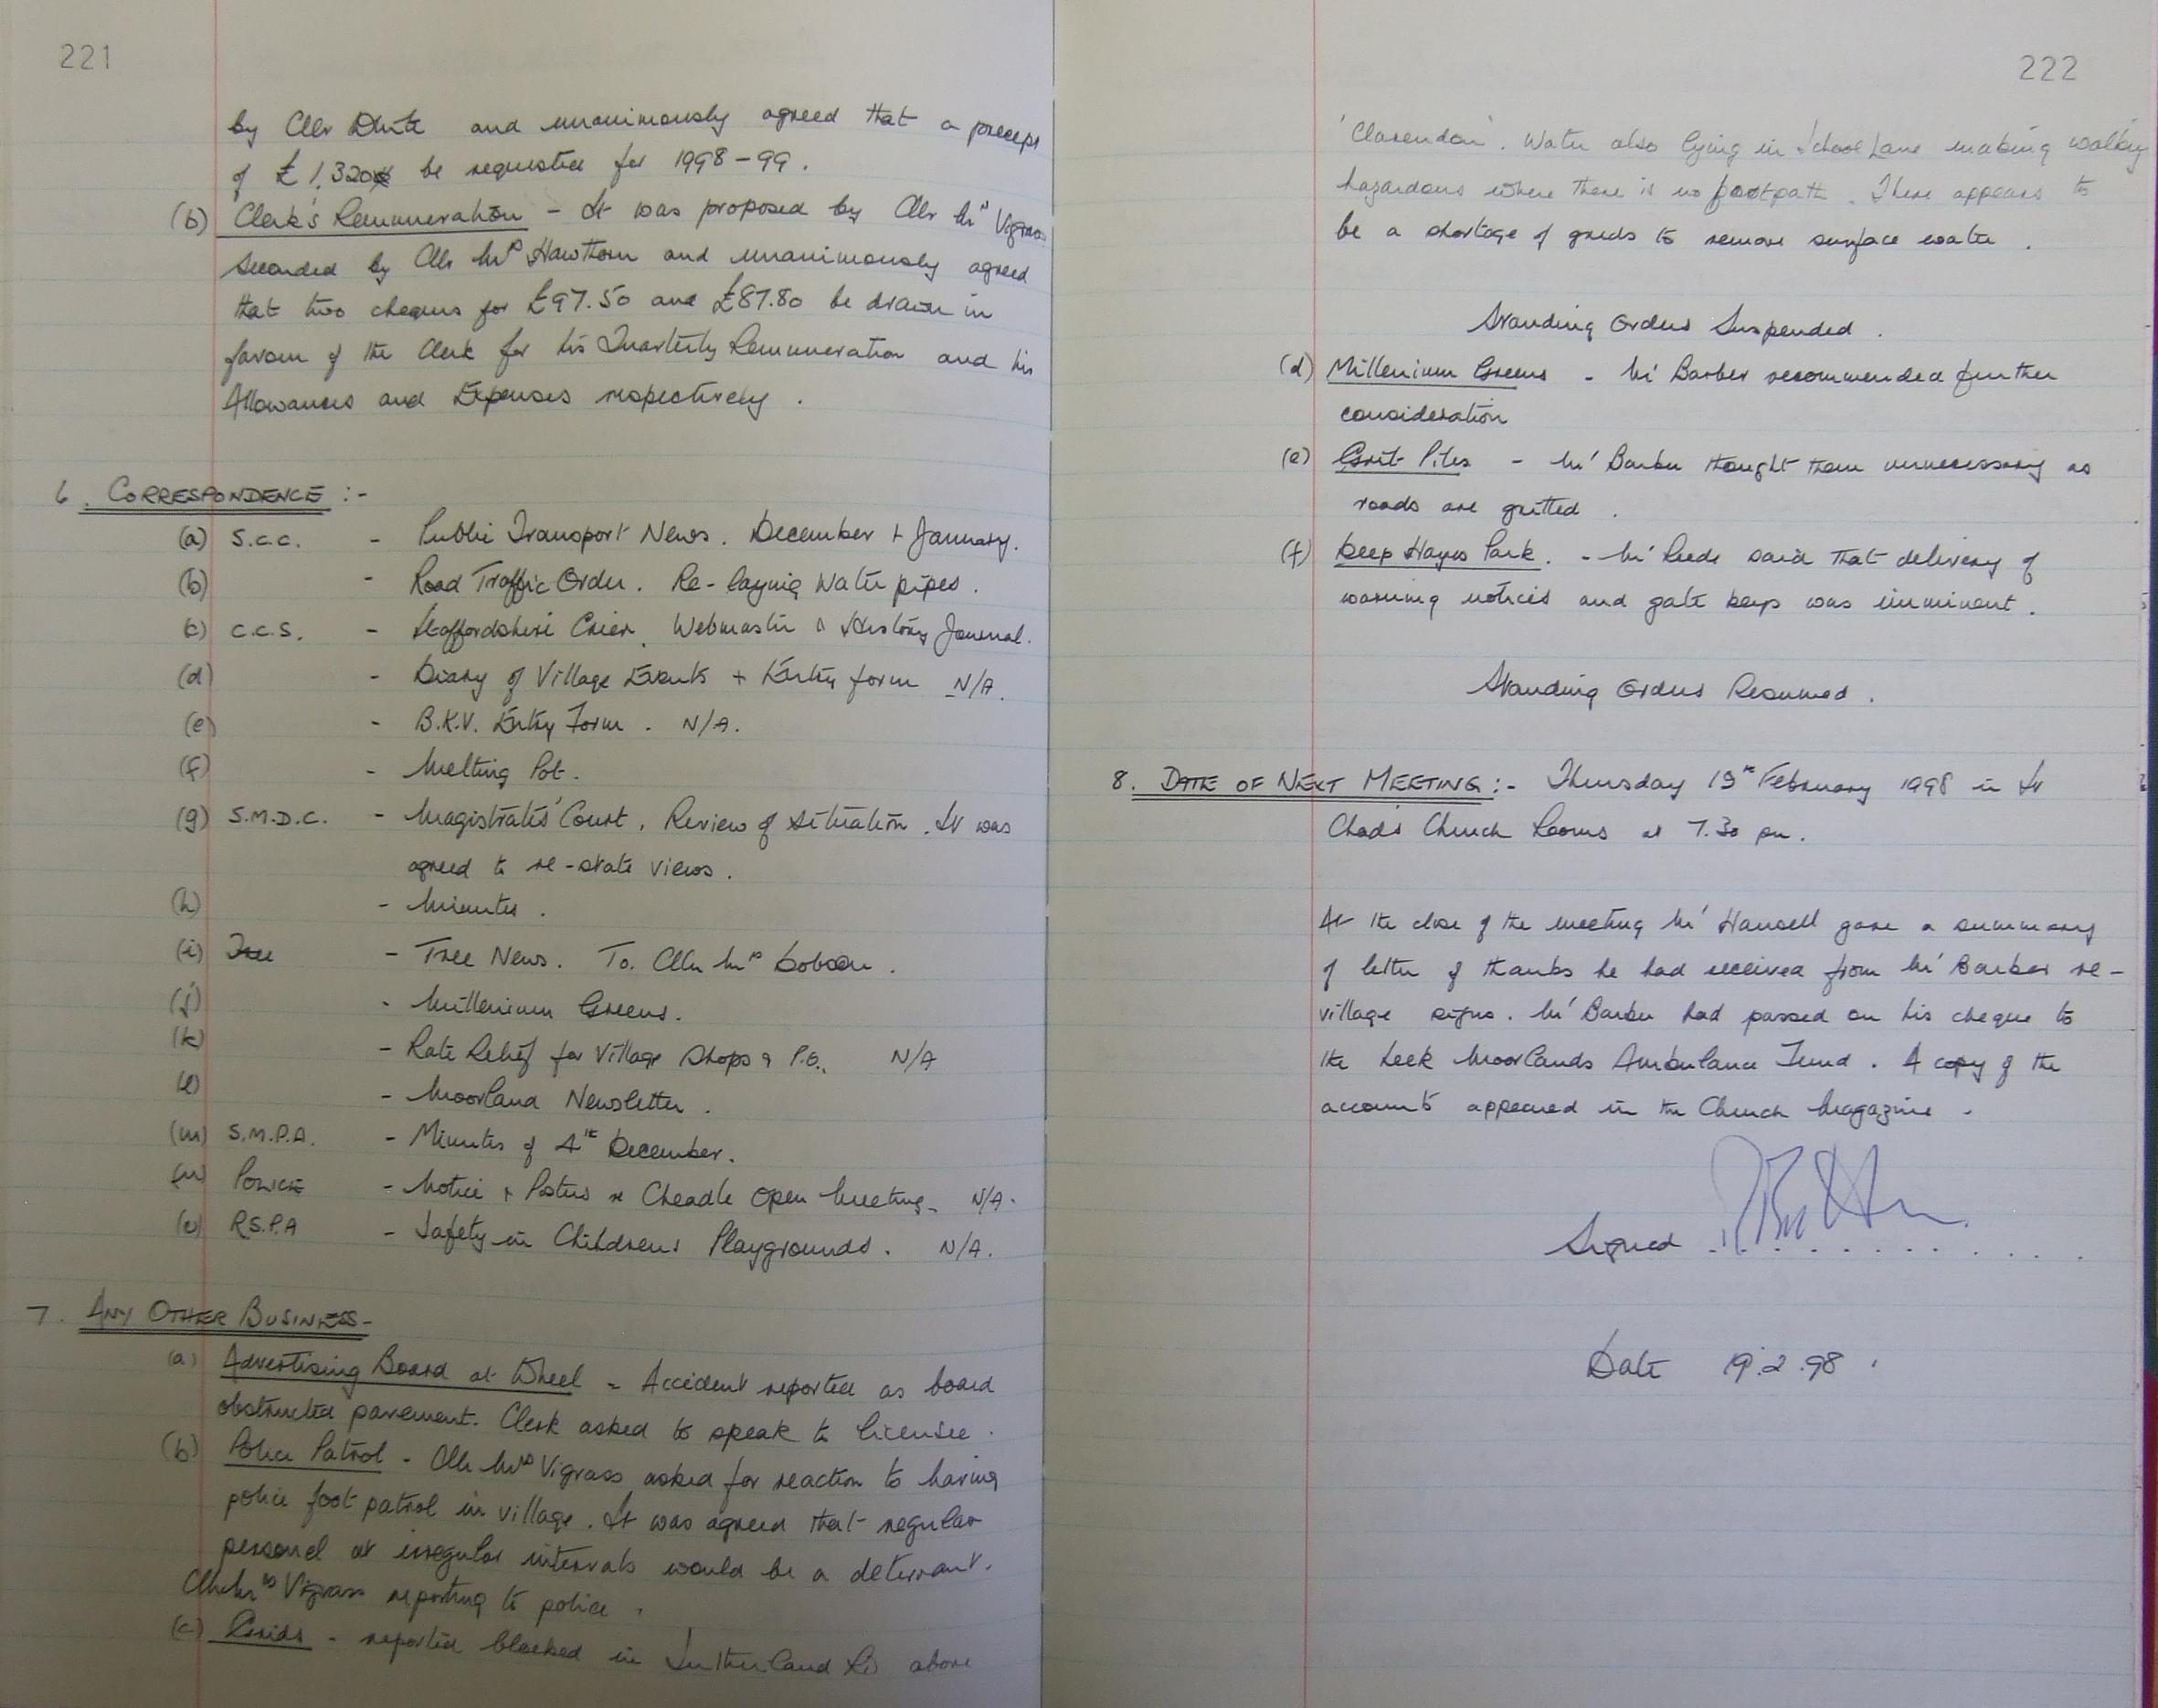 221
by Cllr White and unanimously agreed that a precept
of £1,320 be requested for 1998-99.
(b) Clerk's Remuneration - It was proposed by Cllr Mrs Vigrass
seconded by Cllr Mrs Hawthorn and unanimously agreed
that two cheques for £97.50 and £87.80 be drawn in
favour of the Clerk for his Quarterly Remuneration and his
Allowances and Expenses respectively.
6. CORRESPONDENCE :-
(a) S.C.C. - Public Transport News. December + January.
(b) - Road Traffic Order. Re-laying Water pipes.
(c) C.C.S. - Staffordshire Crier. Webmaster & History Journal.
(d) - Diary of Village Events + Entry form N/A.
(e) - B.K.V. Entry Form. N/A.
(f) - Melting Pot.
(g) S.M.D.C. - Magistrates' Court. Review of situation. It was
agreed to re-state views.
(h) - Minutes.
(i) Tree - Tree News. To. Cllr Mrs Dobson.
(j) - Millenium Greens.
(k) - Rate Relief for Village Shops & P.O. N/A
(l) - Moorland Newsletter.
(m) S.M.P.A. - Minutes of 4th December.
(n) POLICE - Notice + Posters re Cheadle Open Meeting. N/A.
(o) R.S.P.A - Safety in Childrens Playgrounds. N/A.
7. ANY OTHER BUSINESS-
(a) Advertising Board at Wheel - Accident reported as board
obstructed pavement. Clerk asked to speak to licensee.
(b) Police Patrol - Cllr Mrs Vigrass asked for reaction to having
police foot patrol in village. It was agreed that regular
personel at irregular intervals would be a deterrant.
Cllr Mrs Vigrass reporting to police.
(c) Grids - reported blocked in Sutherland Rd above
222
'Clarendon'. Water also lying in School Lane making walking
hazardous where there is no footpath. There appears to
be a shortage of grids to remove surface water.
Standing Orders Suspended.
(d) Millenium Greens - Mr Barber recommended further
consideration
(e) Grit Piles - Mr Barber thought them unnecessary as
roads are gritted.
(f) Deep Hayes Park. - Mr Reeds said that delivery of
warning notices and gate keys was imminent.
Standing Orders Resumed.
8. DATE OF NEXT MEETING :- Thursday 19th February 1998 in St
Chad's Church Rooms at 7.30 pm.
At the close of the meeting Mr Hansell gave a summary
of letter of thanks he had received from Mr Barber re-
village signs. Mr Barber had passed on his cheque to
the Leek Moorlands Ambulance Fund. A copy of the
accounts appeared in the Church Magazine.
Signed
Date 19.2.98.